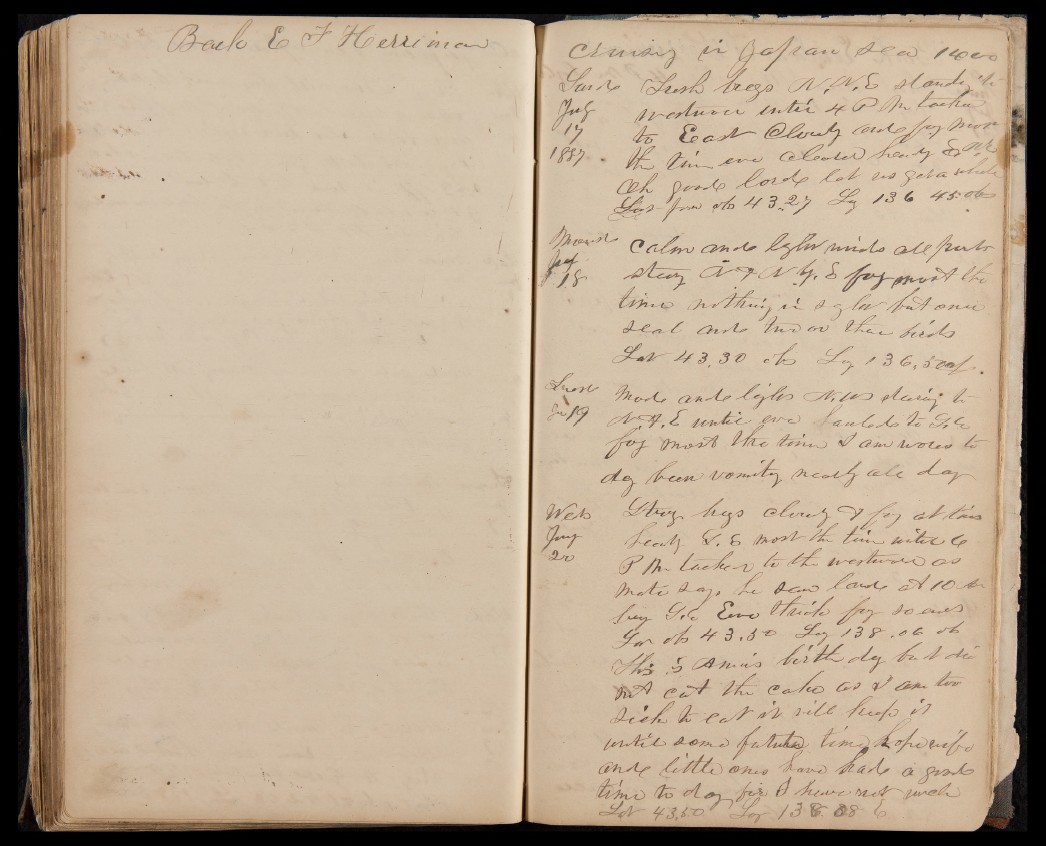 Bark E F Herriman
Cruising in Japan sea
Sund Fresh bregs N N.E standg
July westward until 4 P M tacked
17 to East Cloudy and fog most
1887 the time eve cleared headg
Oh good lord let us get a whale
Lat ob 43.27 Lg 136 45 ob
Mond Calm and light winds all parts
July steerg N & N by E fog most the
18 time nothing in sight but one
seal and two or three birds
Lat 43.30 ob Lg 136.50
Mode and light steering
19 until eve hauled to
fog most the time I am worse to
day been vomitg nearly all day
Wed Strog bregs cloudy & fog at times
July headg E. S most the time until 6
20 P M tacked to the westward as
Mate says he saw land at 10
Eve thick fog
ob 43.50 Lg 138.06 ob
This is Annies birth day but did
not cut the cake as I am too
sick to eat it will keep it
until some future time hope wife
and little ones have had a good
time to day for I have not much
Lat 43.50 Lg 138 08 E